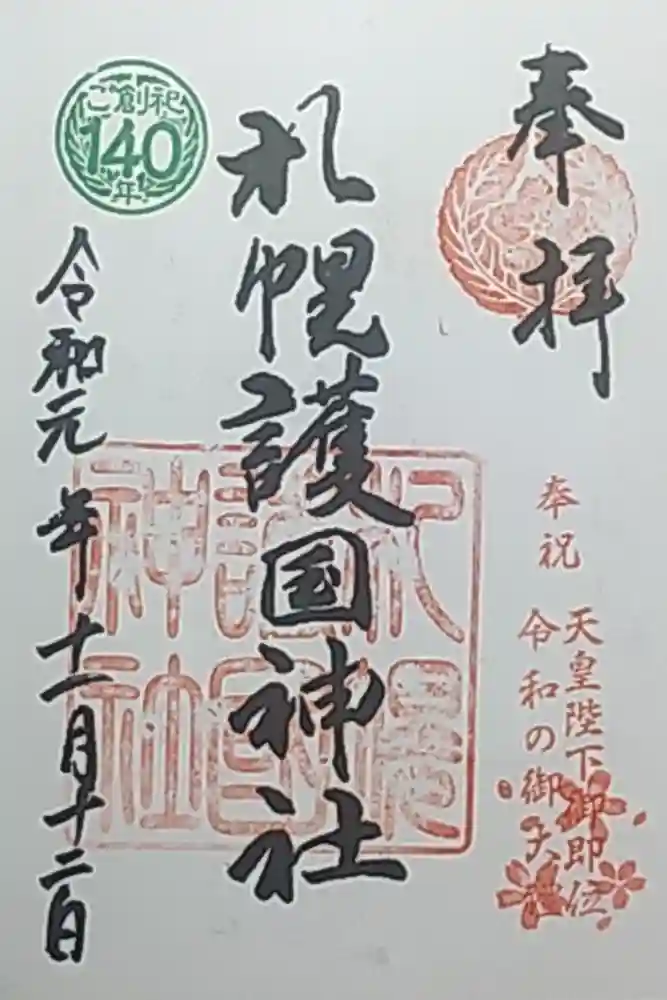 奉拝
奉祝
天皇陛下御即位
令和の御大礼
札幌護国神社
札幌
護国
神社
ご創祀
140
年
令和元年十一月十二日